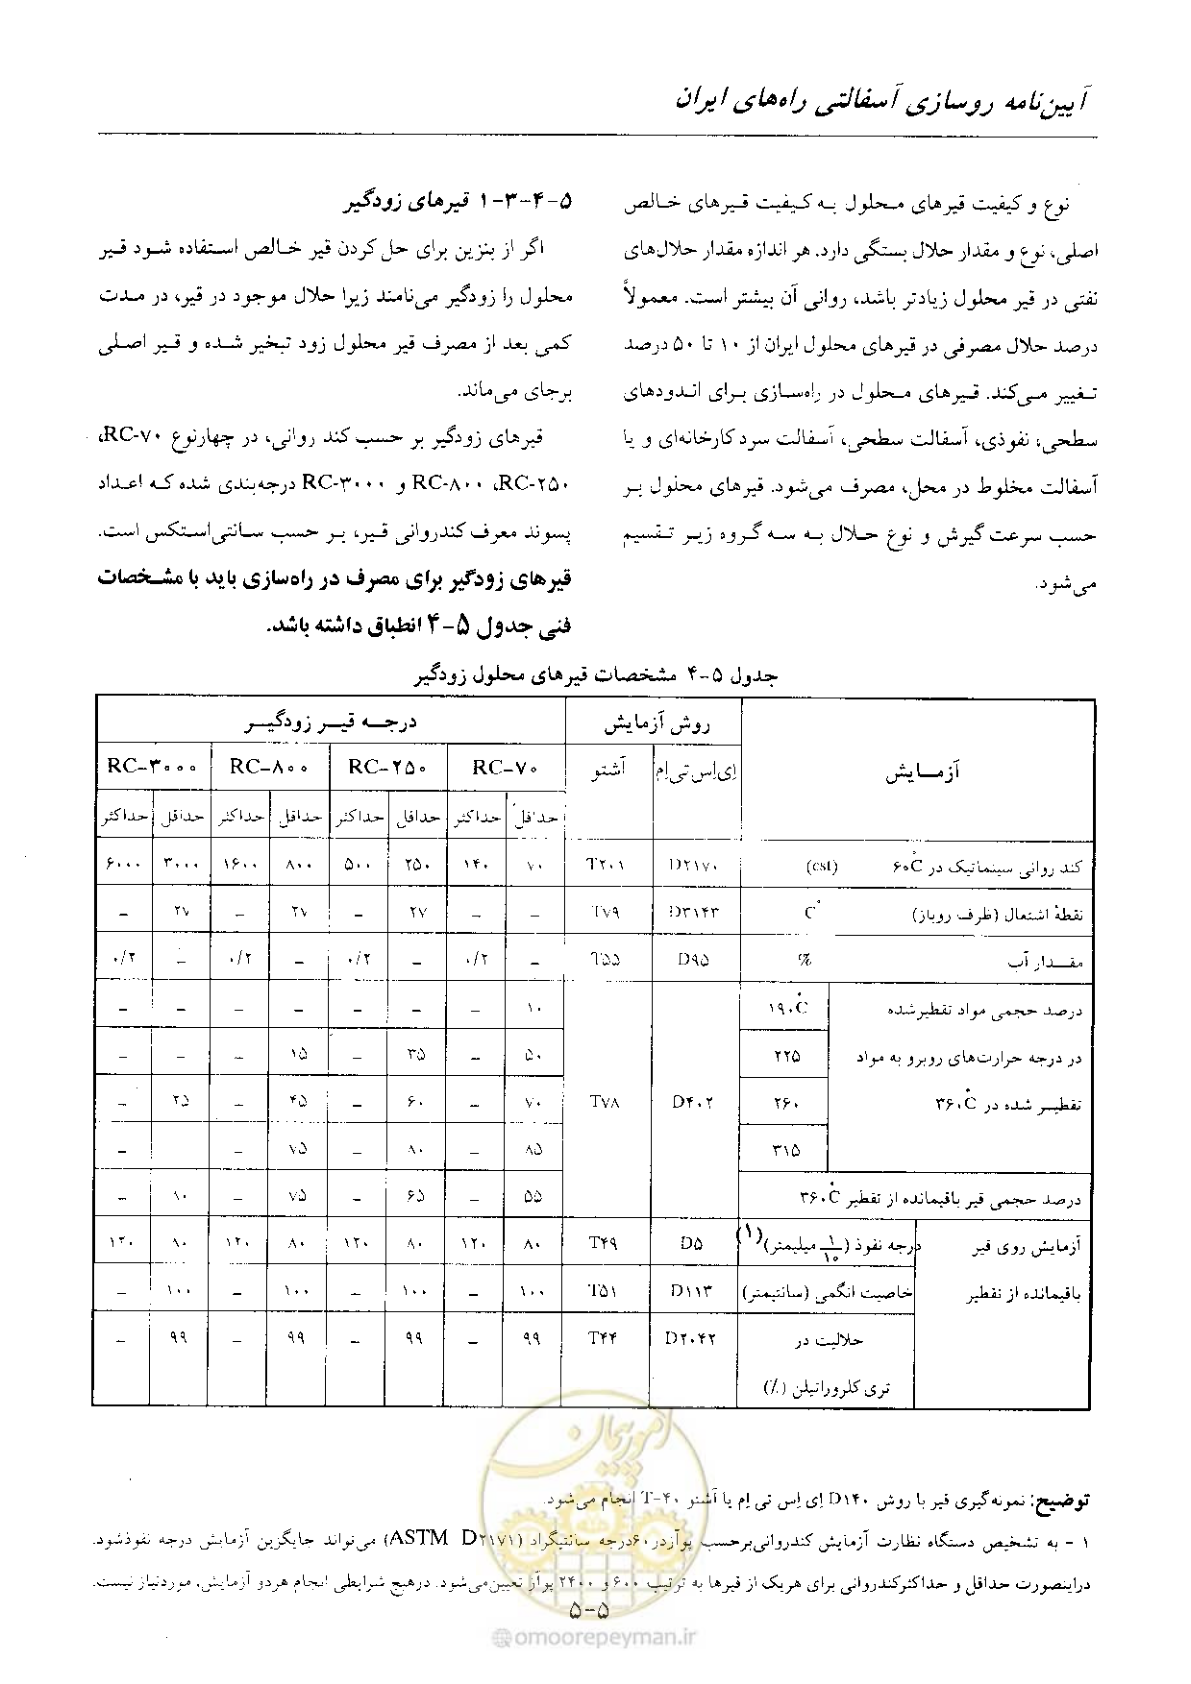 آیین‌نامه روسازی آسفالتی راه‌های ایران
نوع و کیفیت قیرهای محلول به کیفیت قیرهای خالص
اصلی، نوع و مقدار حلال بستگی دارد. هر اندازه مقدار حلال‌های
نفتی در قیر محلول زیادتر باشد، روانی آن بیشتر است. معمولاً
درصد حلال مصرفی در قیرهای محلول ایران از ۱۰ تا ۵۰ درصد
تغییر می‌کند. قیرهای محلول در راه‌سازی برای اندودهای
سطحی، نفوذی، آسفالت سطحی، آسفالت سرد کارخانه‌ای و یا
آسفالت مخلوط در محل، مصرف می‌شود. قیرهای محلول بر
حسب سرعت گیرش و نوع حلال به سه گروه زیر تقسیم
می‌شود.
۵-۴-۳-۱ قیرهای زودگیر
اگر از بنزین برای حل کردن قیر خالص استفاده شود قیر
محلول را زودگیر می‌نامند زیرا حلال موجود در قیر، در مدت
کمی بعد از مصرف قیر محلول زود تبخیر شده و قیر اصلی
برجای می‌ماند.
قیرهای زودگیر بر حسب کند روانی، در چهارنوع RC-۷۰،
RC-۲۵۰، RC-۸۰۰ و RC-۳۰۰۰ درجه‌بندی شده که اعداد
پسوند معرف کندروانی قیر، بر حسب سانتی‌استکس است.
قیرهای زودگیر برای مصرف در راه‌سازی باید با مشخصات
فنی جدول ۵-۴ انطباق داشته باشد.
جدول ۵-۴ مشخصات قیرهای محلول زودگیر
آزمایش روش آزمایش درجه قیر زودگیر
ای‌اِس تی‌اِم آشتو RC-۷۰ RC-۲۵۰ RC-۸۰۰ RC-۳۰۰۰
حداقل حداکثر حداقل حداکثر حداقل حداکثر حداقل حداکثر
کند روانی سینماتیک در ۶۰°C (cst) D۲۱۷۰ T۲۰۱ ۷۰ ۱۴۰ ۲۵۰ ۵۰۰ ۸۰۰ ۱۶۰۰ ۳۰۰۰ ۶۰۰۰
نقطهٔ اشتعال (ظرف روباز) C° D۳۱۴۳ T۷۹ – – ۲۷ – ۲۷ – ۲۷ –
مقدار آب % D۹۵ T۵۵ – ۰/۲ – ۰/۲ – ۰/۲ – ۰/۲
درصد حجمی مواد تقطیرشده ۱۹۰°C ۱۰ – – – – – – –
در درجه حرارت‌های روبرو به مواد ۲۲۵ ۵۰ – ۳۵ – ۱۵ – – –
تقطیر شده در ۳۶۰°C ۲۶۰ D۴۰۲ T۷۸ ۷۰ – ۶۰ – ۴۵ – ۲۵ –
۳۱۵ ۸۵ – ۸۰ – ۷۵ – –
درصد حجمی قیر باقیمانده از تقطیر ۳۶۰°C ۵۵ – ۶۵ – ۷۵ – ۸۰ –
آزمایش روی قیر درجه نفوذ (۱/۱۰ میلیمتر)(۱) D۵ T۴۹ ۸۰ ۱۲۰ ۸۰ ۱۲۰ ۸۰ ۱۲۰ ۸۰ ۱۲۰
باقیمانده از تقطیر خاصیت انگمی (سانتیمتر) D۱۱۳ T۵۱ ۱۰۰ – ۱۰۰ – ۱۰۰ – ۱۰۰ –
حلالیت در D۲۰۴۲ T۴۴ ۹۹ – ۹۹ – ۹۹ – ۹۹ –
تری کلرواتیلن (٪)
امور پیمان
توضیح: نمونه‌گیری قیر با روش D۱۴۰ اِی اِس تی اِم یا آشتو T-۴۰ انجام می‌شود.
۱ - به تشخیص دستگاه نظارت آزمایش کندروانی‌برحسب پوآزدر۶۰درجه سانتیگراد (ASTM D۲۱۷۱) می‌تواند جایگزین آزمایش درجه نفوذشود.
دراینصورت حداقل و حداکثرکندروانی برای هریک از قیرها به ترتیب ۶۰۰ و ۲۴۰۰ پوآز تعیین‌می‌شود. درهیچ شرایطی انجام هردو آزمایش، موردنیاز نیست.
۵-۵
@omoorepeyman.ir